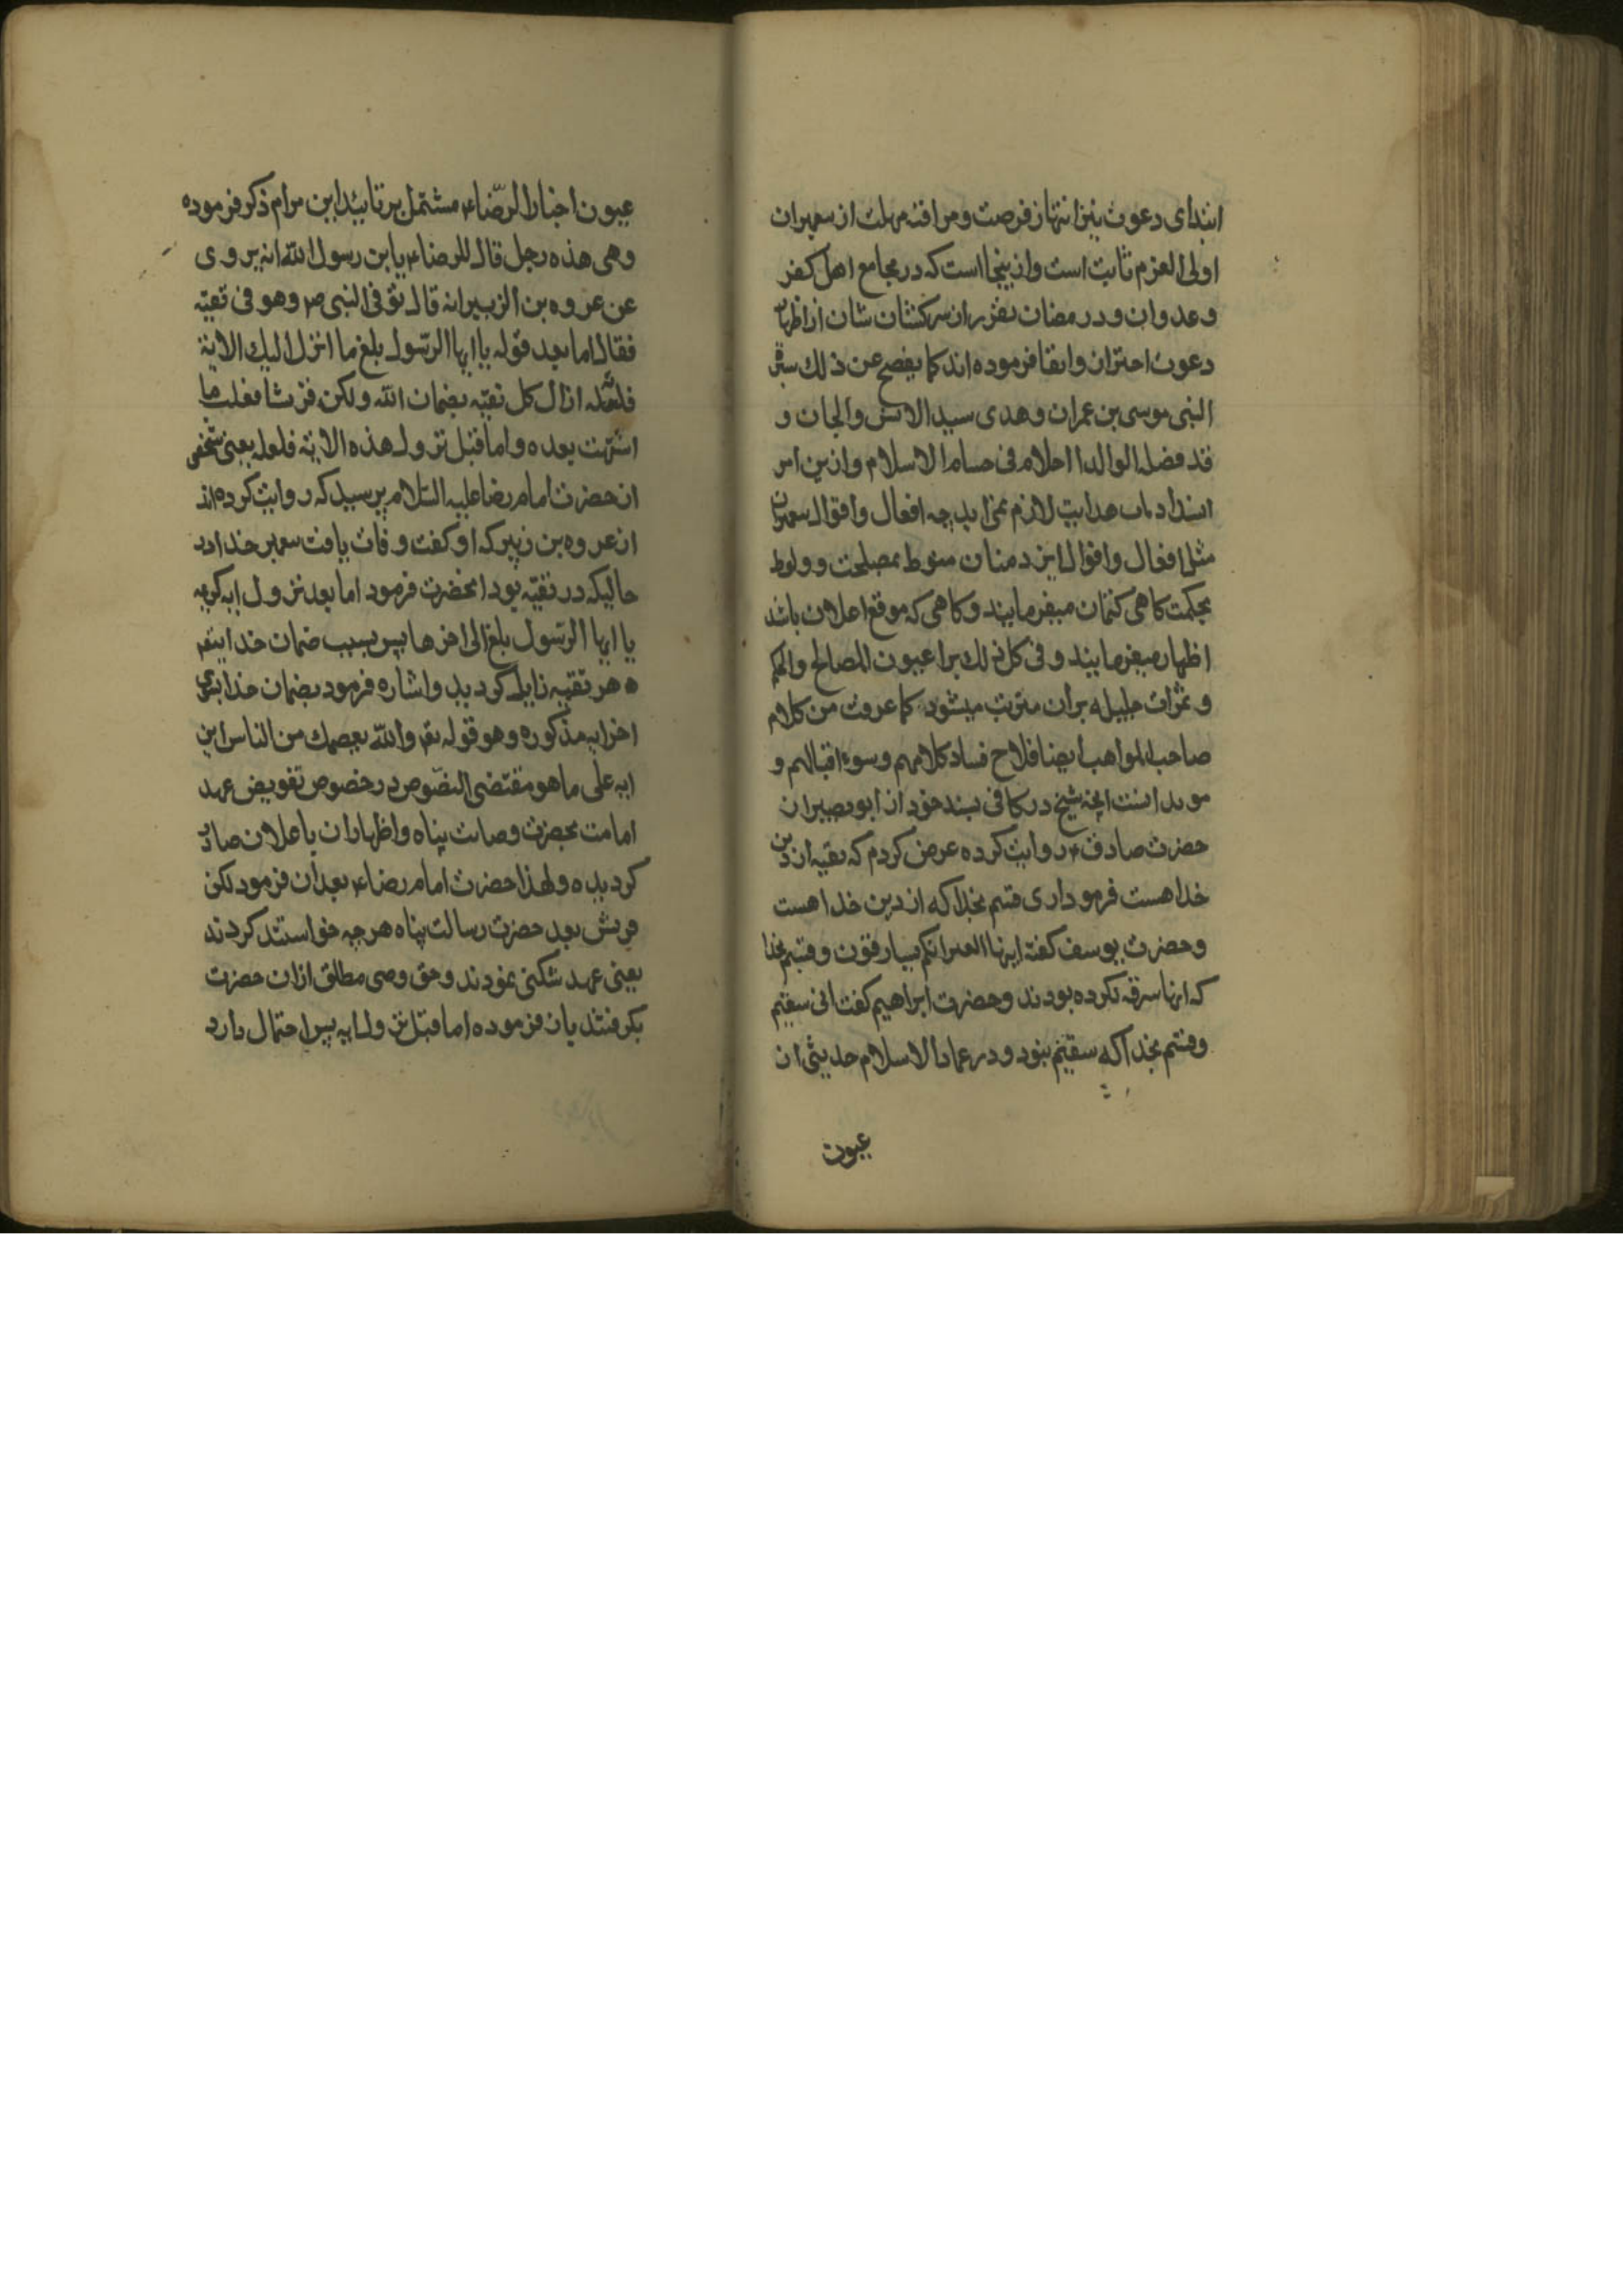 ابتدای دعوت نیز انتهاز فرصت و مرافته مهلت از پیغمبران
اولی العزم ثابت است و ازینجا است که در مجامع اهل کفر
و عدوان و در مضان تفرر ان سرکشان شان از اظهار
دعوت احتراز و اتقا فرموده اند کما یفصح عن ذلک سیر
النبی موسی بن عمران و هدی سید الانس والجان و
قد فصله الوالد العلام فی حسام الاسلام و ازین امر
انسداد باب هدایت لازم نمی اید چه افعال و اقوال پیغمبران
مثل افعال و اقوال ایزد منان منوط بمصلحت و مربوط
بحکمت گاهی کتمان میفرمایند و گاهی که موقع اعلان باشد
اظهار میفرمایند و فی کل ذلک یراعیون المصالح والحکم
و ثمرات جلیله بران مترتب میشود کما عرفت من کلام
صاحب المواهب ایضا فلاح فساد کلامهم وسوء اقبالهم و
موید اینست انچه شیخ در کافی بسند خود از ابو بصیر از
حضرت صادق ع روایت کرده عرض کردم که تقیه از دین
خدا هست فرمود اری قسم بخدا که از دین خدا هست
و حضرت یوسف گفته ایتها العیر انکم لسارقون و قسم بخدا
که انها سرقه نکرده بودند و حضرت ابراهیم گفت انی سقیم
و قسم بخدا که سقیم نبود و در عماد الاسلام حدیثی از
عیون
عیون اخبار الرضا ع مشتمل بر تایید این مرام ذکر فرموده
وهی هذه رجل قال للرضا ع یا بن رسول الله انه یروی
عن عروه بن الزبیر انه قال توفی النبی ص وهو فی تقیّه
فقال اما بعد قوله یا ایها الرسول بلغ ما انزل الیک الایة
فلعله ازال کل تقیّه بضمان الله ولکن قریشا فعلت ما
اشتهت بعده واما قبل نزول هذه الایة فلعله یعنی شخصی
از حضرت امام رضا علیه السلام پرسید که روایت کرده اند
از عروه بن زبیر که او گفت وفات یافت پیغمبر خدا در
حالیکه در تقیّه بود انحضرت فرمود اما بعد نزول ایه کریمه
یا ایها الرسول بلغ الی اخرها پس بسبب ضمان خدایتعم
ه هر تقیه زایل گردید و اشاره فرمود بضمان خدا بسوی
اخر ایه مذکوره وهو قوله تعم والله یعصمک من الناس این
ایه علی ما هو مقتضی النصوص در خصوص تفویض عهد
امامت بحضرت وصایت پناه و اظهار ان باعلان صادر
گردیده ولهذا حضرت امام رضا ع بعد ان فرمود لکن
قریش بعد حضرت رسالت پناه هرچه خواستند کردند
یعنی عهد شکنی نمودند و حق وصی مطلق ازان حضرت
بگرفتند باز فرموده اما قبل نزول ایه پس احتمال دارد